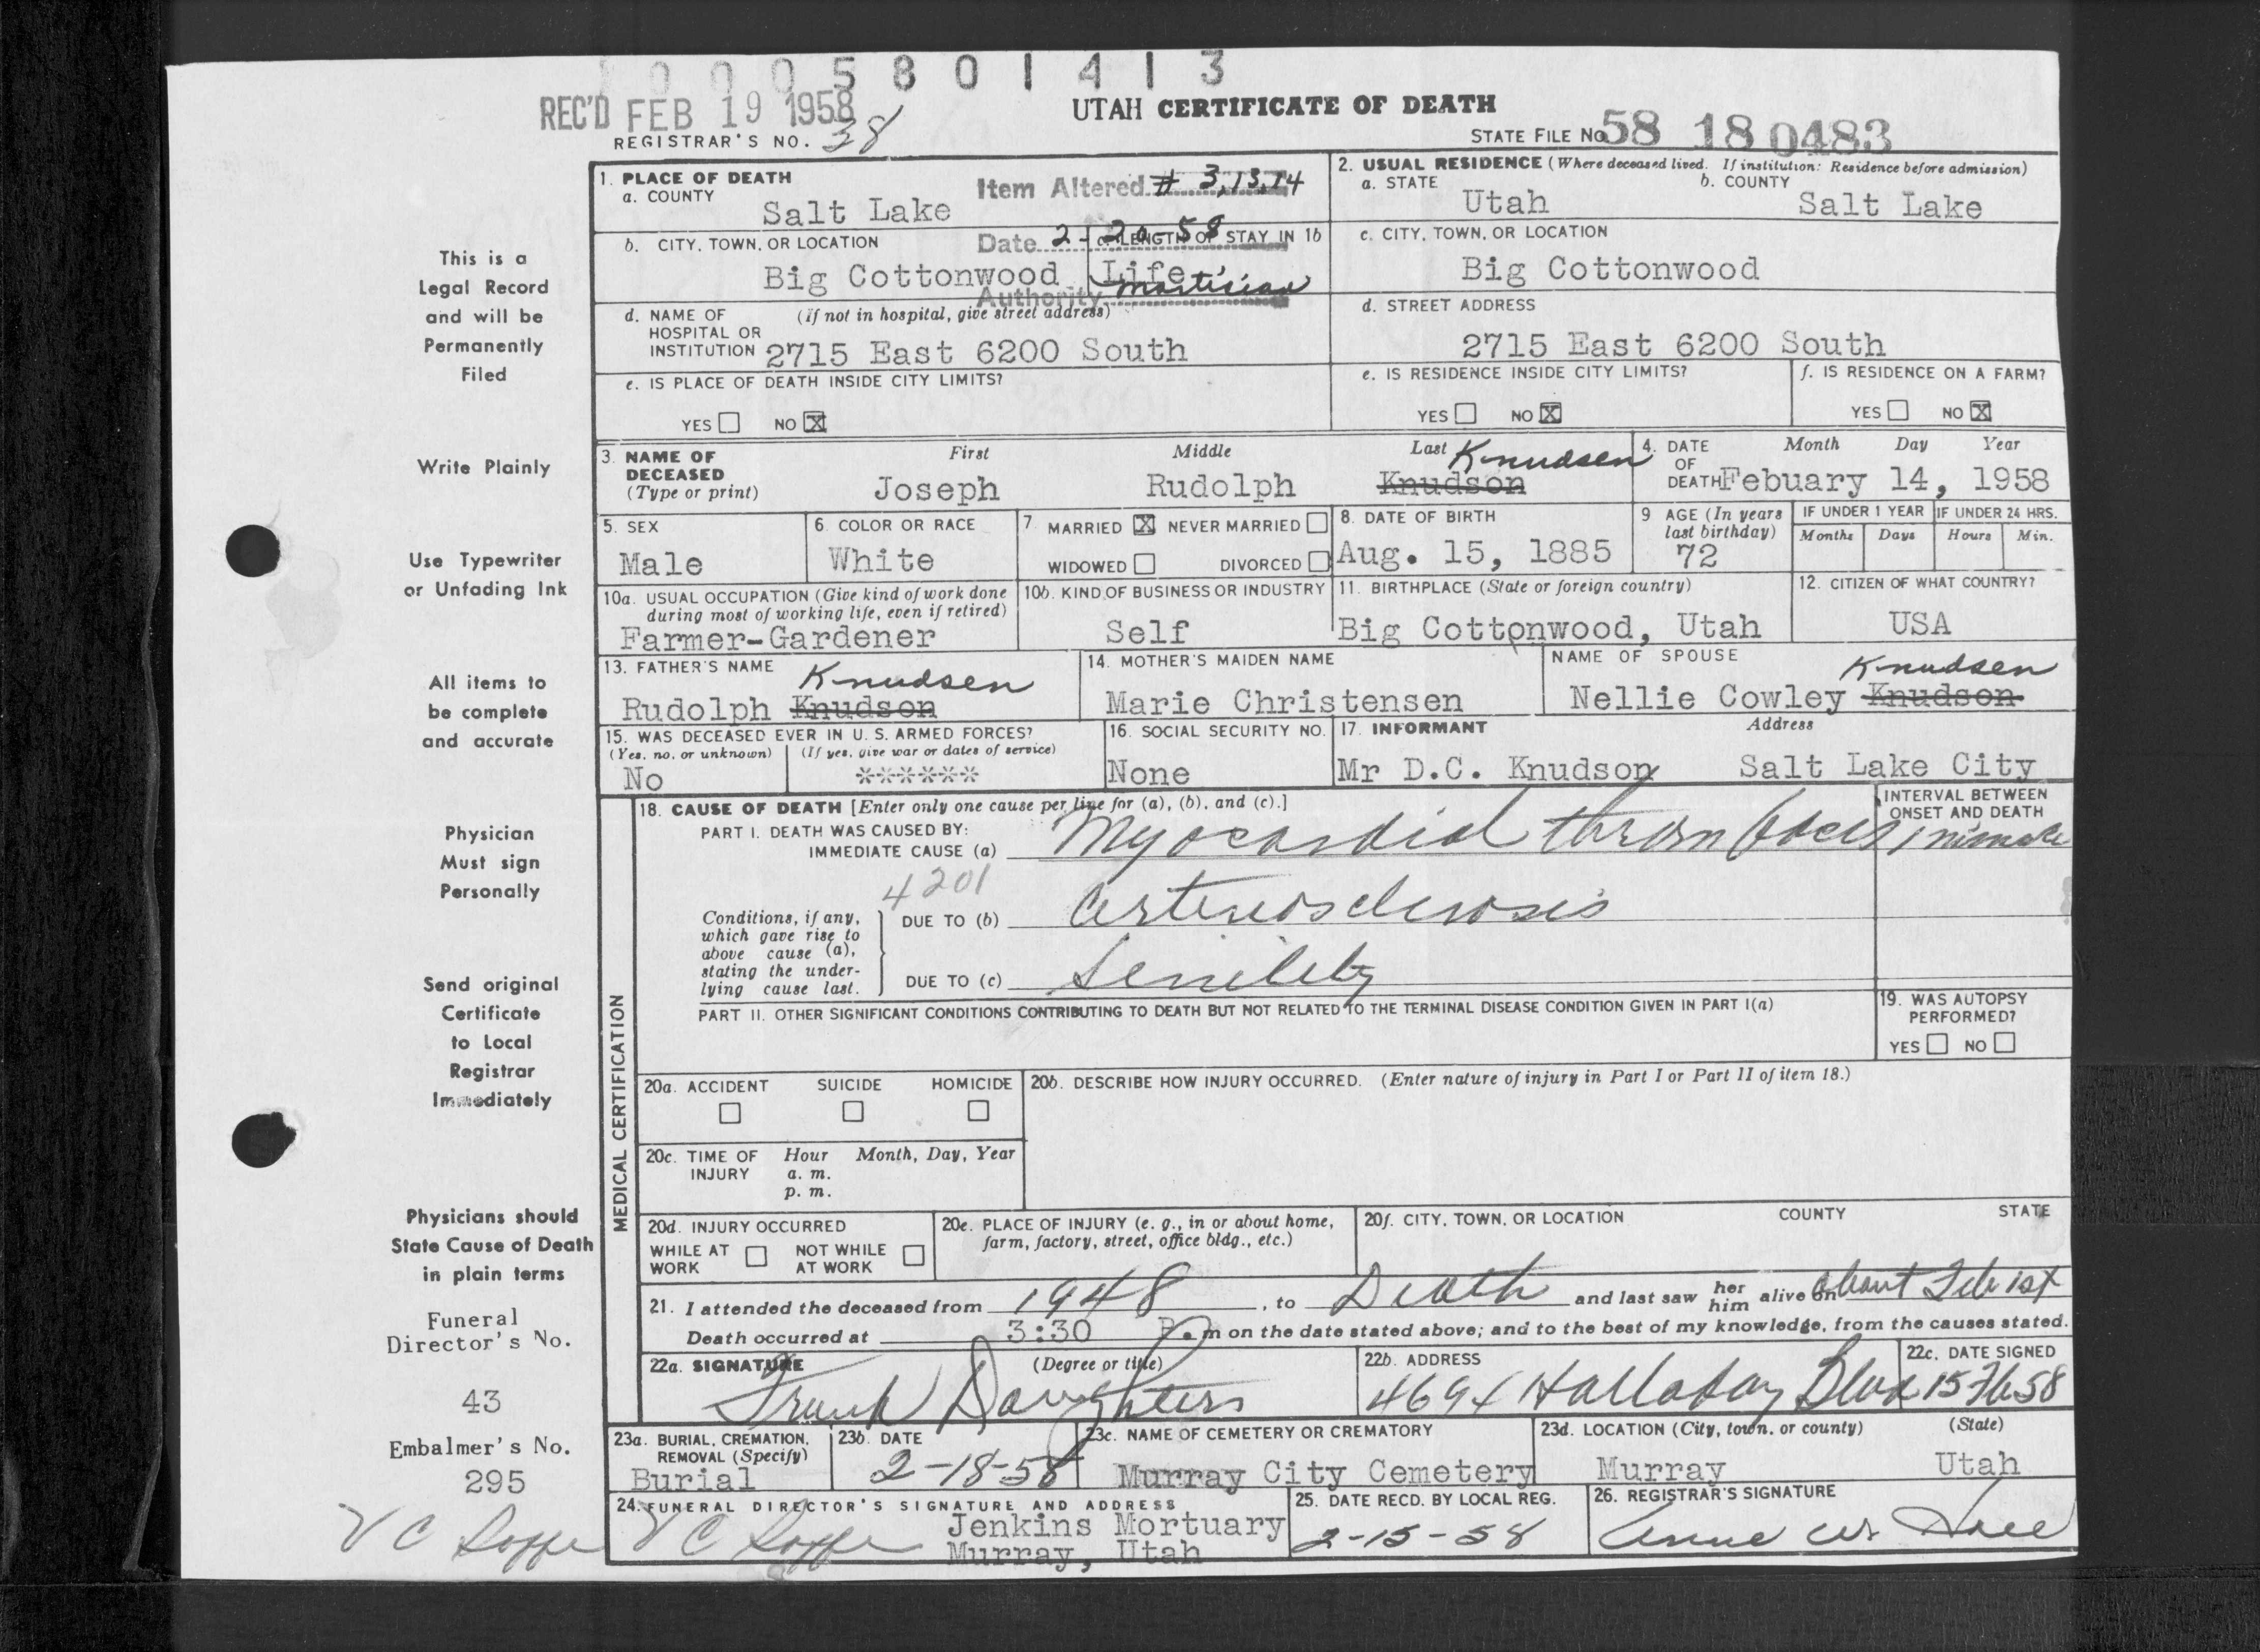 0 0 0 5 8 0 1 4 1 3
REC'D FEB 19 1958
UTAH CERTIFICATE OF DEATH
REGISTRAR'S NO. 38
STATE FILE No. 58 18 0483
This is a
Legal Record
and will be
Permanently
Filed
Write Plainly
Use Typewriter
or Unfading Ink
All items to
be complete
and accurate
Physician
Must sign
Personally
Send original
Certificate
to Local
Registrar
Immediately
Physicians should
State Cause of Death
in plain terms
Funeral
Director's No.
43
Embalmer's No.
295
1. PLACE OF DEATH
a. COUNTY
Salt Lake
Item Altered # 3,13,14
Date 2-20-58
Authority Mortician
2. USUAL RESIDENCE (Where deceased lived. If institution: Residence before admission)
a. STATE
Utah
b. COUNTY
Salt Lake
b. CITY, TOWN, OR LOCATION
Big Cottonwood
c. LENGTH OF STAY IN 1b
Life
c. CITY, TOWN, OR LOCATION
Big Cottonwood
d. NAME OF HOSPITAL OR INSTITUTION (If not in hospital, give street address)
2715 East 6200 South
d. STREET ADDRESS
2715 East 6200 South
e. IS PLACE OF DEATH INSIDE CITY LIMITS?
YES NO X
e. IS RESIDENCE INSIDE CITY LIMITS?
YES NO X
f. IS RESIDENCE ON A FARM?
YES NO X
3. NAME OF DECEASED (Type or print)
First Middle Last
Joseph Rudolph Knudson Knudsen
4. DATE OF DEATH
Month Day Year
Febuary 14, 1958
5. SEX
Male
6. COLOR OR RACE
White
7. MARRIED X NEVER MARRIED
WIDOWED DIVORCED
8. DATE OF BIRTH
Aug. 15, 1885
9 AGE (In years last birthday)
72
IF UNDER 1 YEAR
Months Days
IF UNDER 24 HRS.
Hours Min.
10a. USUAL OCCUPATION (Give kind of work done during most of working life, even if retired)
Farmer-Gardener
10b. KIND OF BUSINESS OR INDUSTRY
Self
11. BIRTHPLACE (State or foreign country)
Big Cottonwood, Utah
12. CITIZEN OF WHAT COUNTRY?
USA
13. FATHER'S NAME
Rudolph Knudson Knudsen
14. MOTHER'S MAIDEN NAME
Marie Christensen
NAME OF SPOUSE
Nellie Cowley Knudson Knudsen
15. WAS DECEASED EVER IN U. S. ARMED FORCES?
(Yes, no, or unknown) (If yes, give war or dates of service)
No ******
16. SOCIAL SECURITY NO.
None
17. INFORMANT Address
Mr D.C. Knudson Salt Lake City
MEDICAL CERTIFICATION
18. CAUSE OF DEATH [Enter only one cause per line for (a), (b), and (c).]
INTERVAL BETWEEN ONSET AND DEATH
PART I. DEATH WAS CAUSED BY:
IMMEDIATE CAUSE (a) Myocardial thrombosis 1 minute
4201
Conditions, if any, which gave rise to above cause (a), stating the underlying cause last.
DUE TO (b) Arteriosclerosis
DUE TO (c) Senility
PART II. OTHER SIGNIFICANT CONDITIONS CONTRIBUTING TO DEATH BUT NOT RELATED TO THE TERMINAL DISEASE CONDITION GIVEN IN PART I(a)
19. WAS AUTOPSY PERFORMED?
YES NO
20a. ACCIDENT SUICIDE HOMICIDE
20b. DESCRIBE HOW INJURY OCCURRED. (Enter nature of injury in Part I or Part II of item 18.)
20c. TIME OF INJURY
Hour Month, Day, Year
a. m.
p. m.
20d. INJURY OCCURRED
WHILE AT WORK NOT WHILE AT WORK
20e. PLACE OF INJURY (e. g., in or about home, farm, factory, street, office bldg., etc.)
20f. CITY, TOWN, OR LOCATION COUNTY STATE
21. I attended the deceased from 1948, to Death and last saw her him alive on about Feb 1st
Death occurred at 3:30 P. m on the date stated above; and to the best of my knowledge, from the causes stated.
22a. SIGNATURE (Degree or title)
Frank Daughters
22b. ADDRESS
Holladay Blvd
22c. DATE SIGNED
15 Feb 58
23a. BURIAL, CREMATION, REMOVAL (Specify)
Burial
23b. DATE
2-18-58
23c. NAME OF CEMETERY OR CREMATORY
Murray City Cemetery
23d. LOCATION (City, town, or county) (State)
Murray Utah
24. FUNERAL DIRECTOR'S SIGNATURE AND ADDRESS
Jenkins Mortuary
Murray, Utah
25. DATE RECD. BY LOCAL REG.
2-15-58
26. REGISTRAR'S SIGNATURE
Anne W.